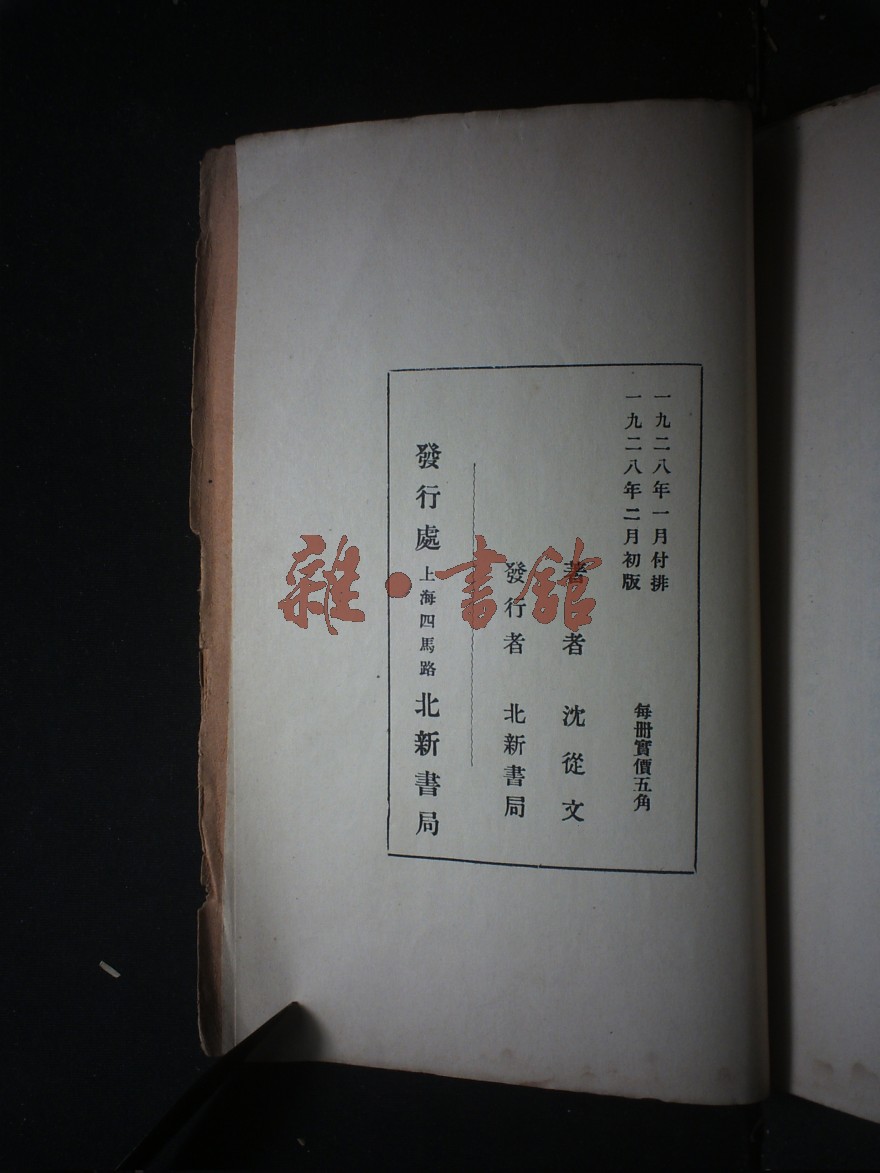 一九二八年一月付排
一九二八年二月初版
每冊實價五角
著者 沈從文
發行者 北新書局
發行處 上海四馬路 北新書局
雜·書館